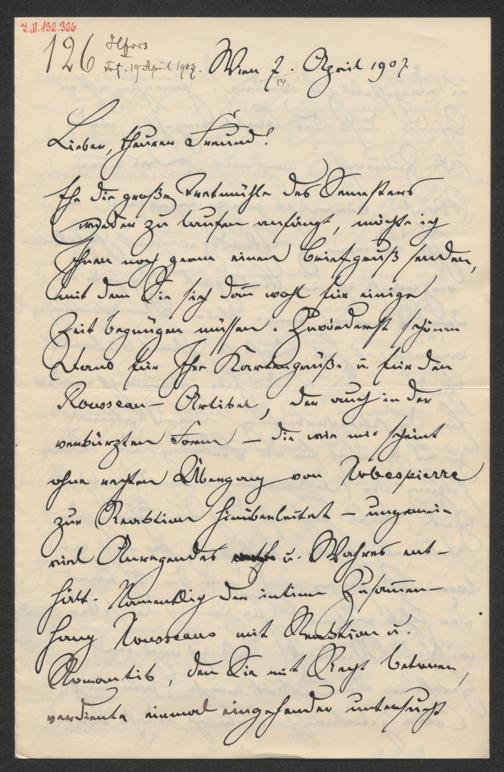 J.N.132.326
126
19 April 1907.
Wien 7. April 1907
14.
Lieber, theurer Freund!
Ehe die große Tretmühle des Semesters
wieder zu laufen anfängt, möchte ich
Ihnen noch gerne einen Briefgruß senden,
mit dem Sie sich dann wohl für einige
Zeit begnügen müssen. Zuvörderst schönen
Dank für Ihre Kartengrüße u für den
Rousseau-Artikel, der auch in der
verkürzten Form – die wie mir scheint
ohne rechten Übergang von Robespierre
zur Reaktion hinüberleitet – ungemein
viel Anregendes u. Wahres ent-
hält. Namentlich der intime Zusammen-
hang Rousseaus mit Reaktion u.
Romantik, den Sie mit Recht betonen,
verdiente einmal eingehender untersucht